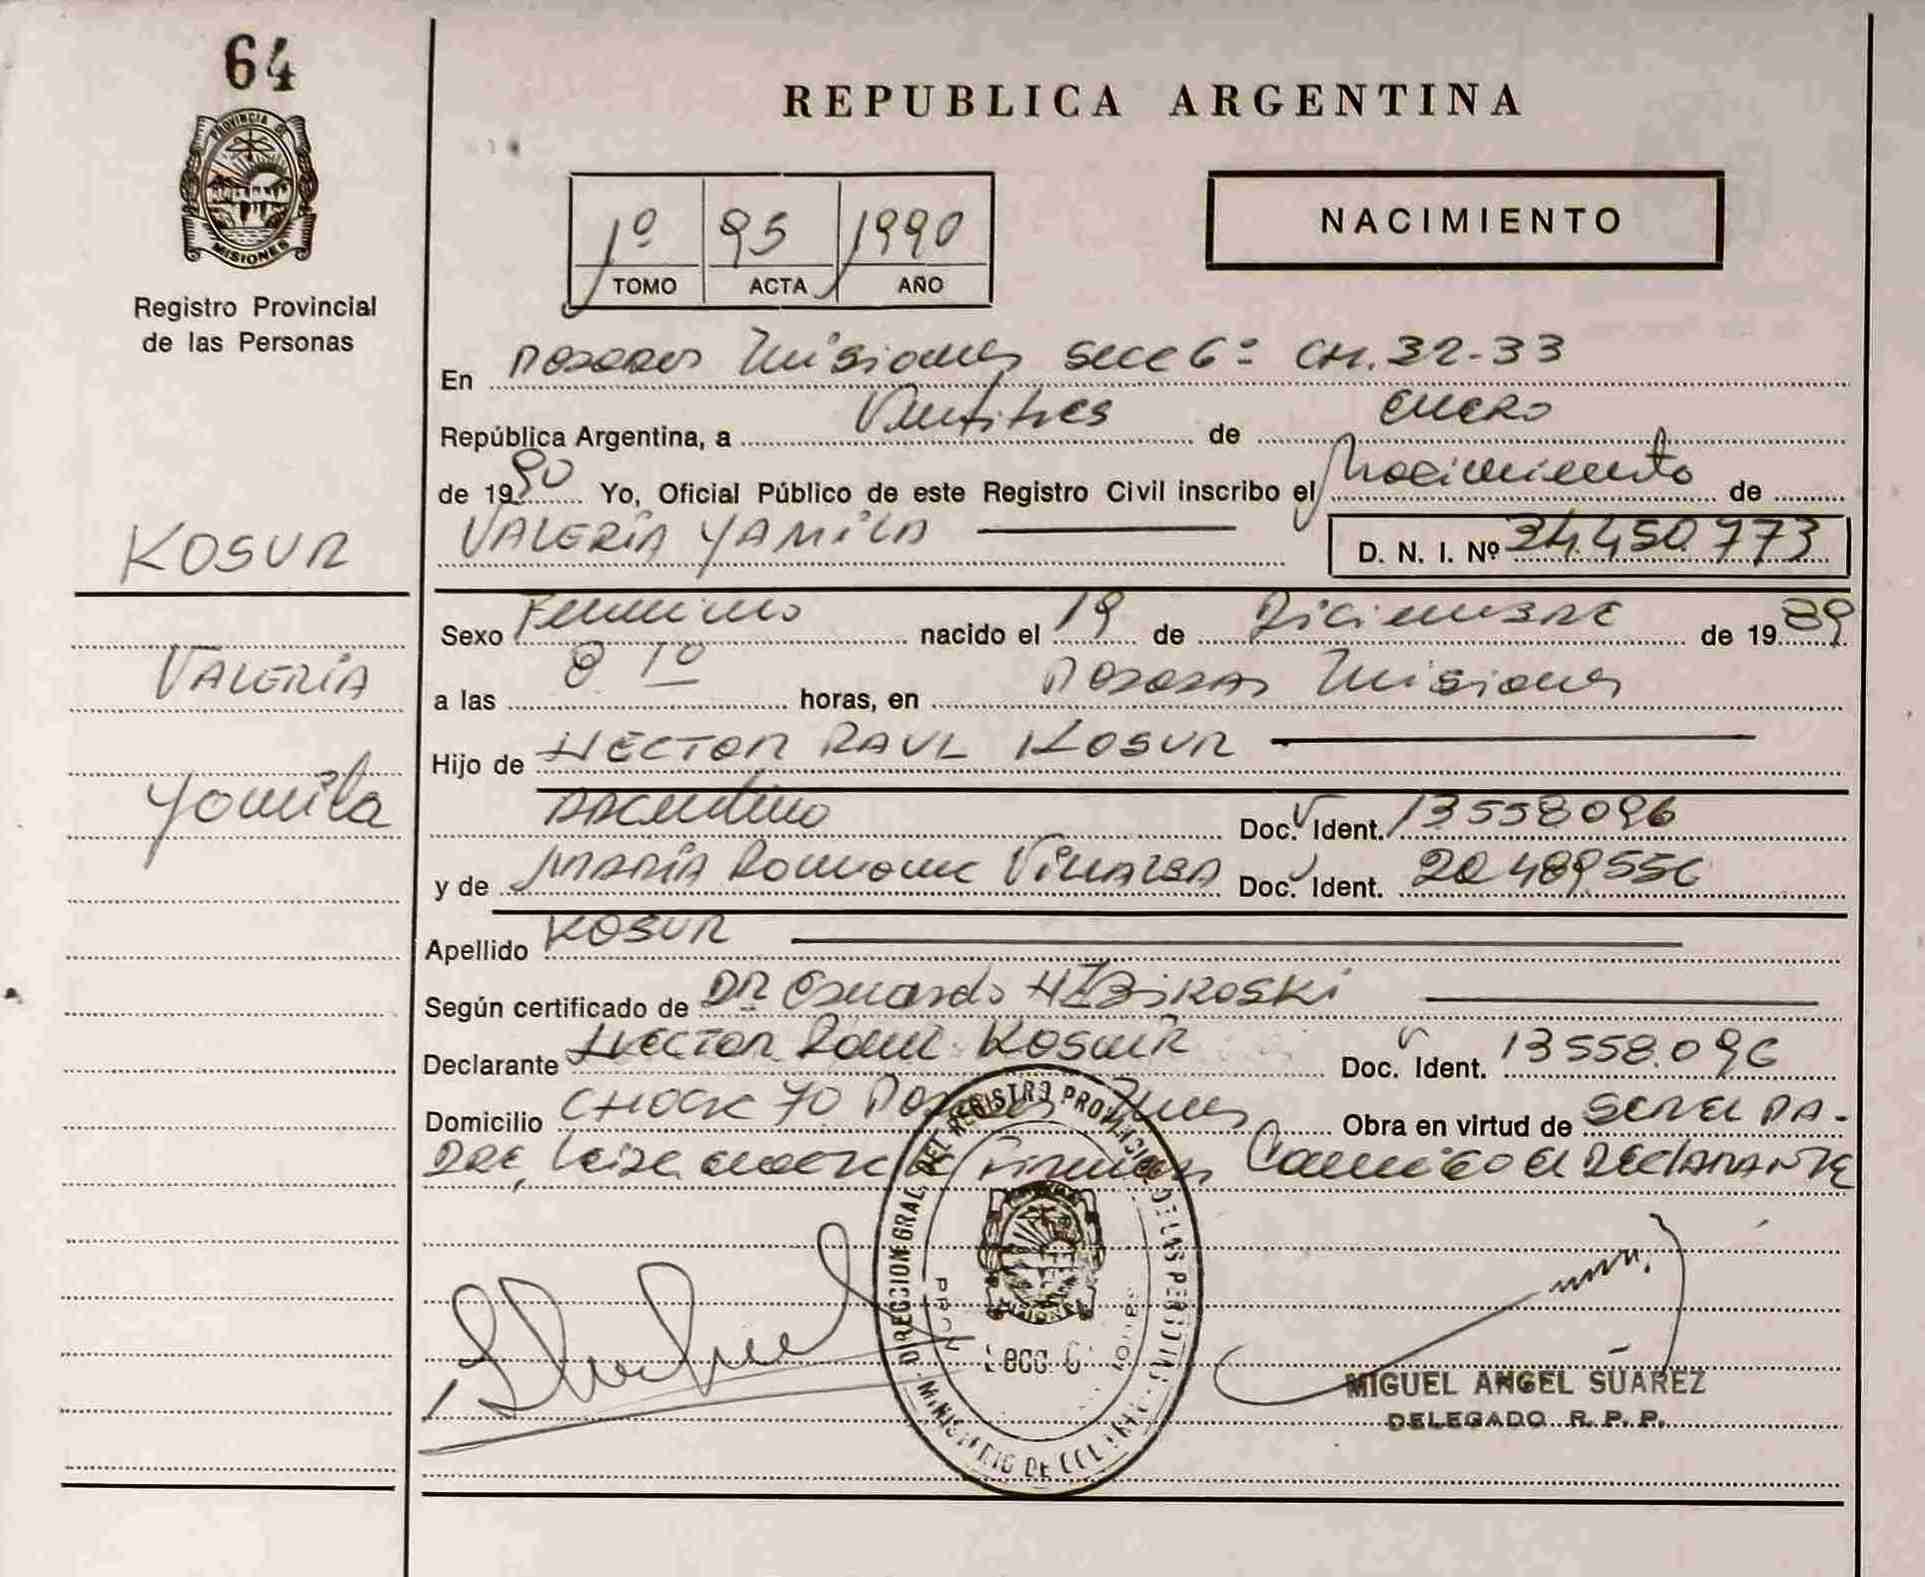 64
PROVINCIA DE
MISIONES
Registro Provincial
de las Personas
KOSUR
VALERIA
Yamila
REPUBLICA ARGENTINA
1º 95 1990
TOMO ACTA AÑO
NACIMIENTO
En Posadas Misiones Secc 6º CH. 32-33
República Argentina, a Veintitres de enero
de 1990 Yo, Oficial Público de este Registro Civil inscribo el Nacimiento de
VALERIA YAMILA D. N. I. Nº 34.450.773
Sexo Femenino nacido el 19 de Diciembre de 1989
a las 8 10 horas, en Posadas Misiones
Hijo de HECTOR RAUL KOSUR
Argentino Doc. Ident. 13558096
y de MARÍA Romona VILLALBA Doc. Ident. 20489556
Apellido KOSUR
Según certificado de DR Eduardo
Declarante HECTOR Raul KOSUR Doc. Ident. 13558.096
Domicilio CHACRA 70 Posadas Mnes Obra en virtud de SER EL PA-
DRE, Leida el acta Firman Conmigo el DECLARANTE
DIRECCION GRAL. DEL REGISTRO PROVINCIAL DE LAS PERSONAS
MINISTERIO DE
MISIONES
MIGUEL ANGEL SUAREZ
DELEGADO R. P. P.